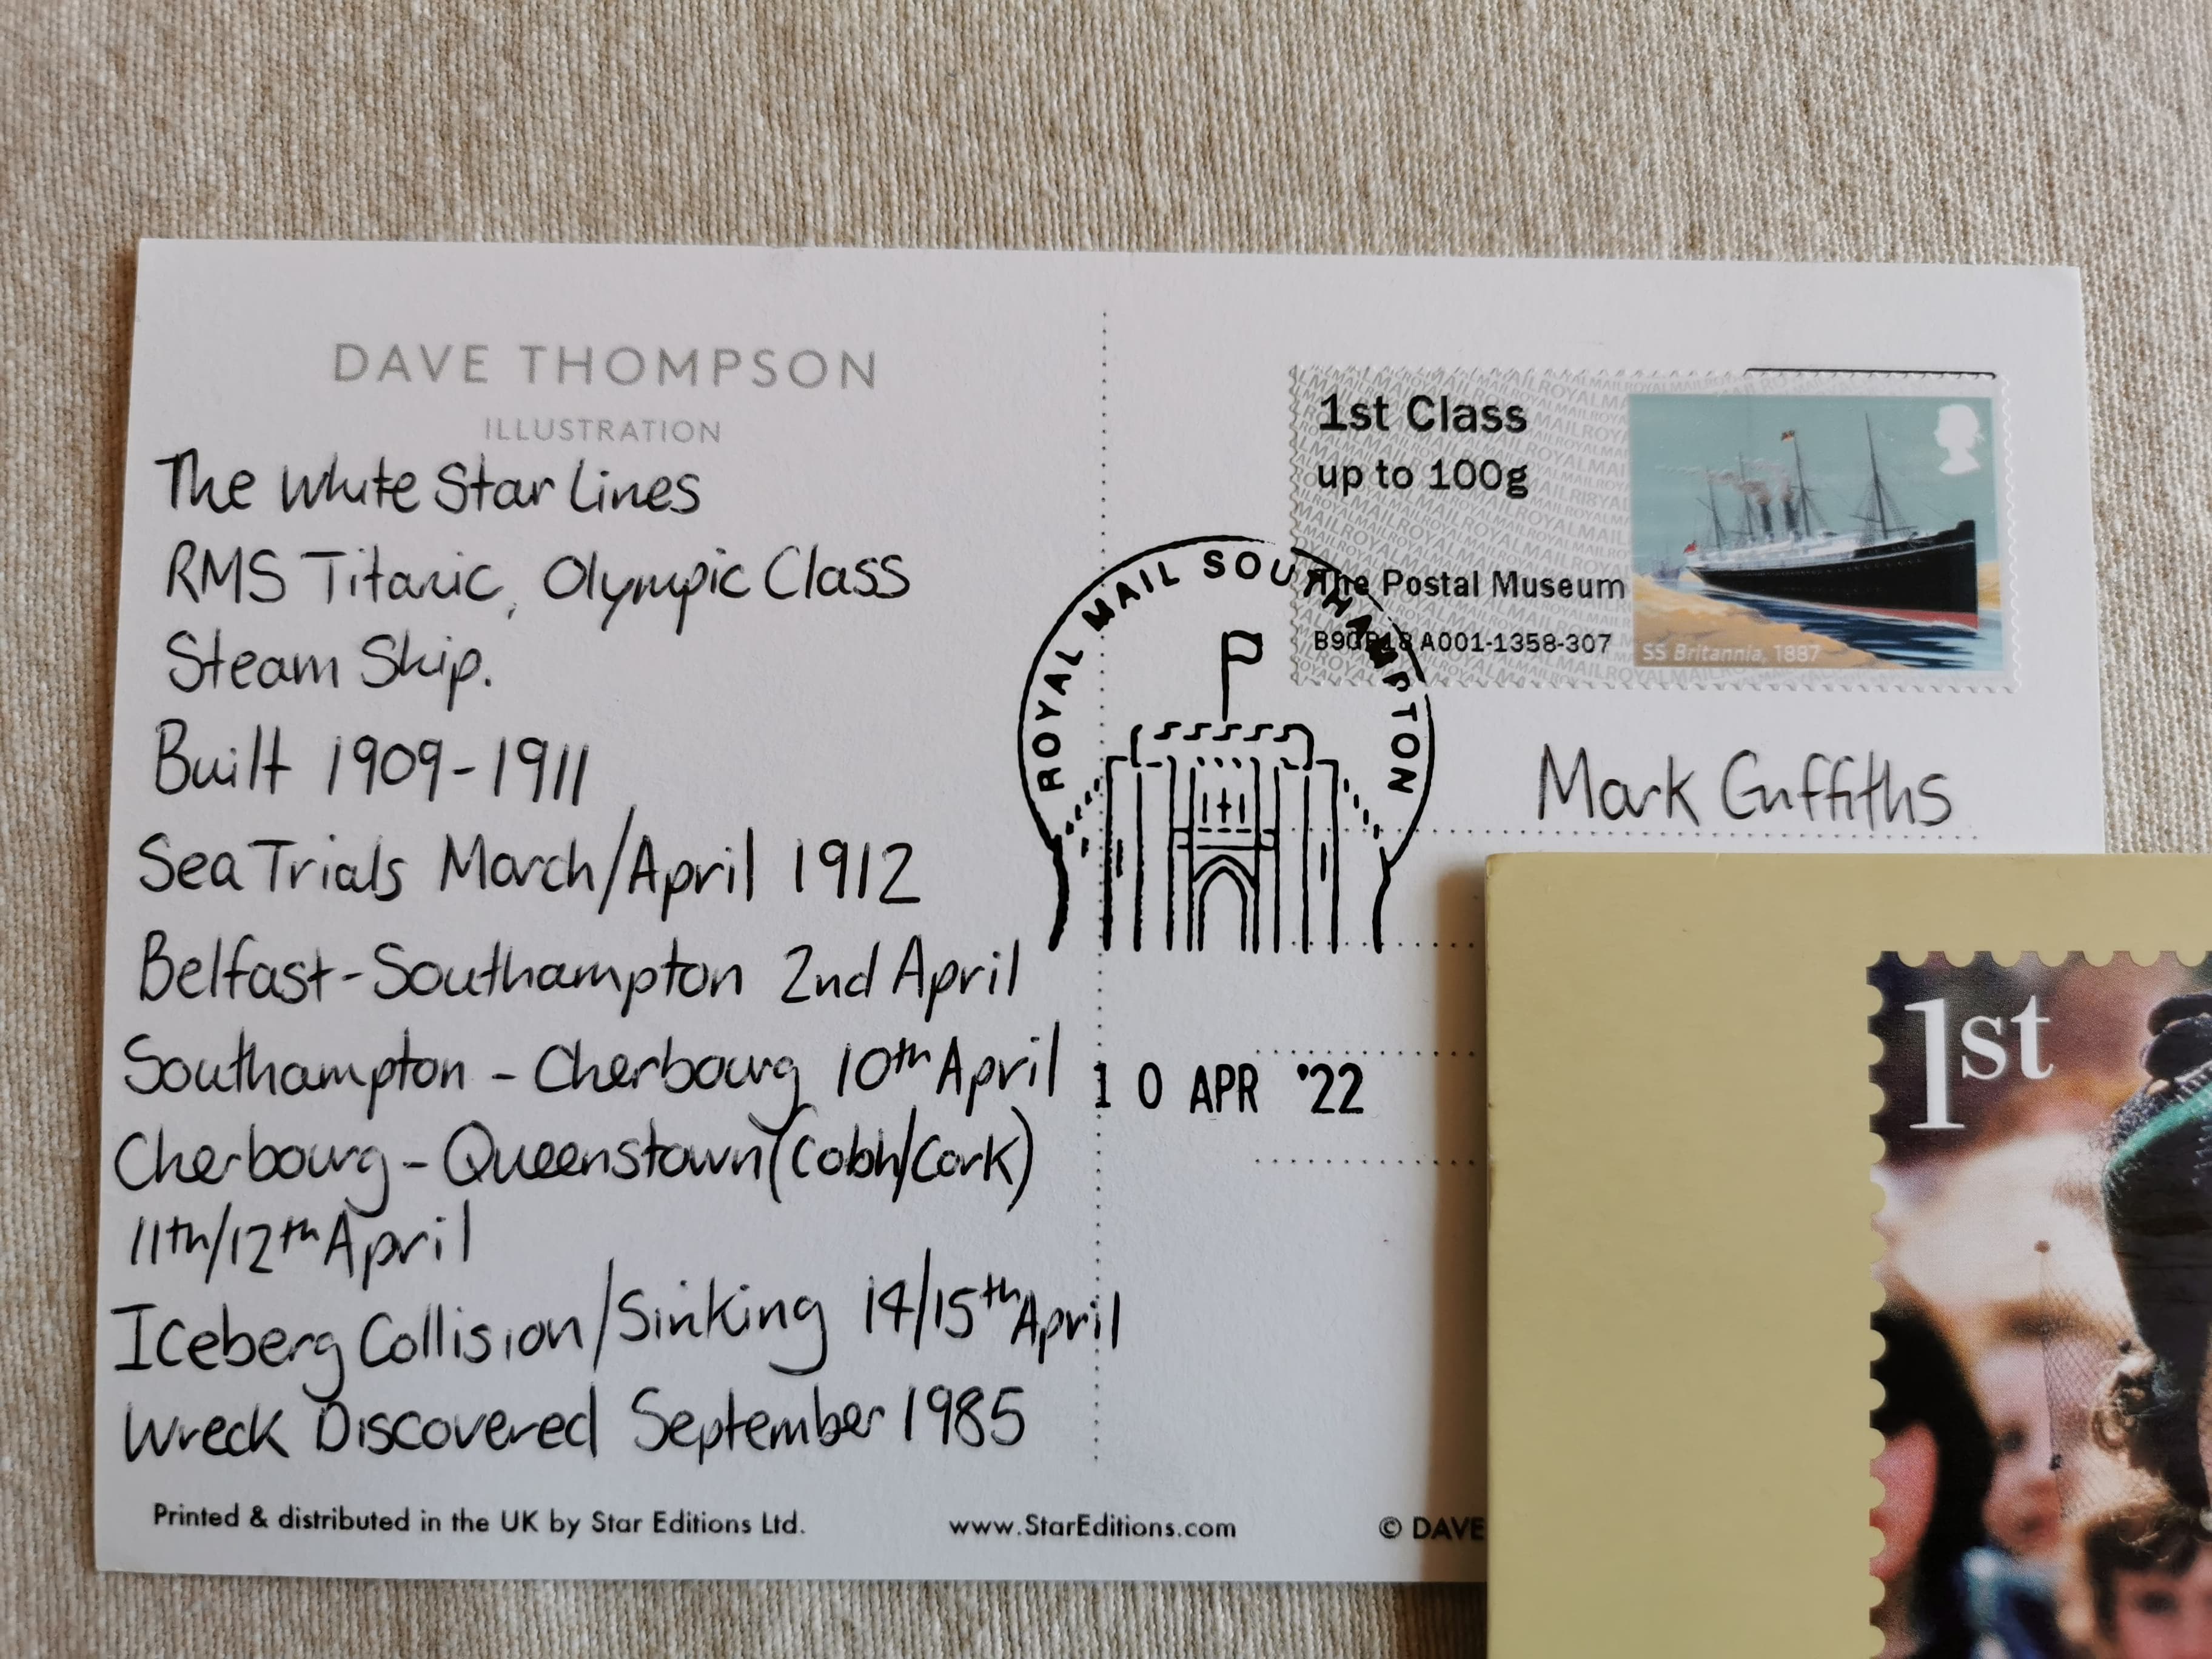 DAVE THOMPSON
ILLUSTRATION
The White Star Lines
RMS Titanic, Olympic Class
Steam Ship.
Built 1909-1911
Sea Trials March/April 1912
Belfast-Southampton 2nd April
Southampton - Cherbourg 10th April
Cherbourg - Queenstown (Cobh/Cork)
11th/12th April
Iceberg Collision/Sinking 14/15th April
Wreck Discovered September 1985
Printed & distributed in the UK by Star Editions Ltd.
www.StarEditions.com
© DAVE
1st Class
up to 100g
The Postal Museum
A001-1358-307
SS Britannia, 1887
ROYAL MAIL SOUTHAMPTON
10 APR '22
Mark Griffiths
1st